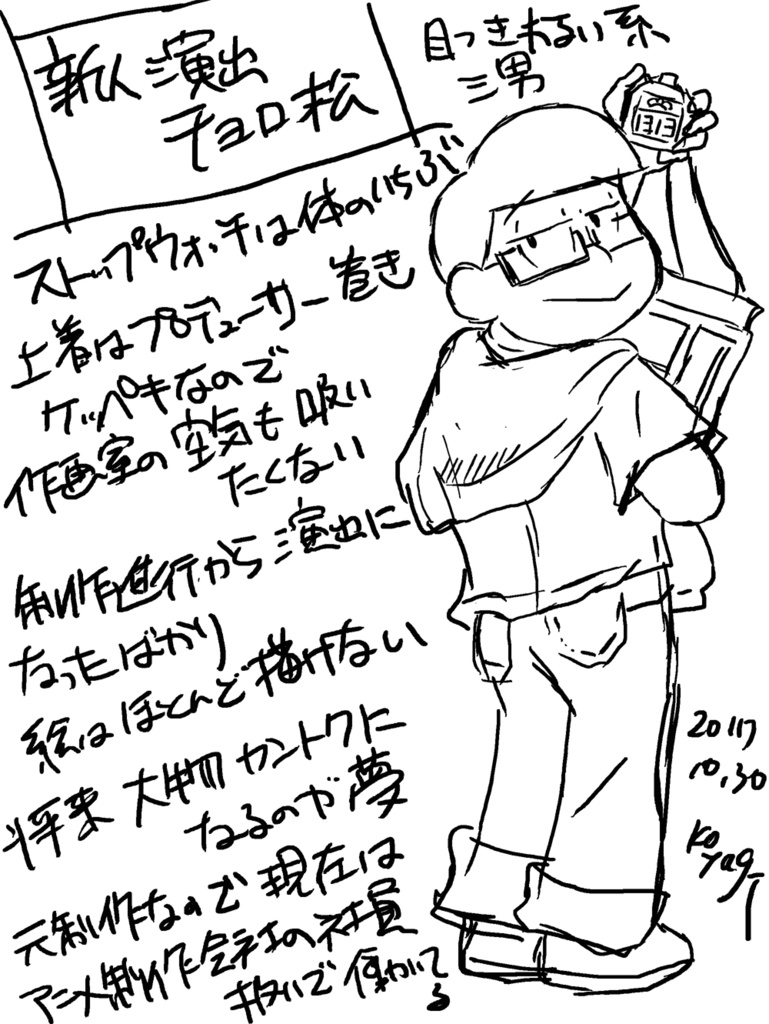 新人演出
チョロ松
目つきわるい系
三男
ストップウォッチは体のいちぶ
上着はプロデューサー巻き
ケッペキなので
作画室の空気も吸い
たくない
制作進行から演出に
なったばかり
絵はほとんど描けない
将来大物カントクに
なるのが夢
元制作なので現在は
アニメ制作会社の社員
扱いで働いてる
2017
10.30
Koyagi